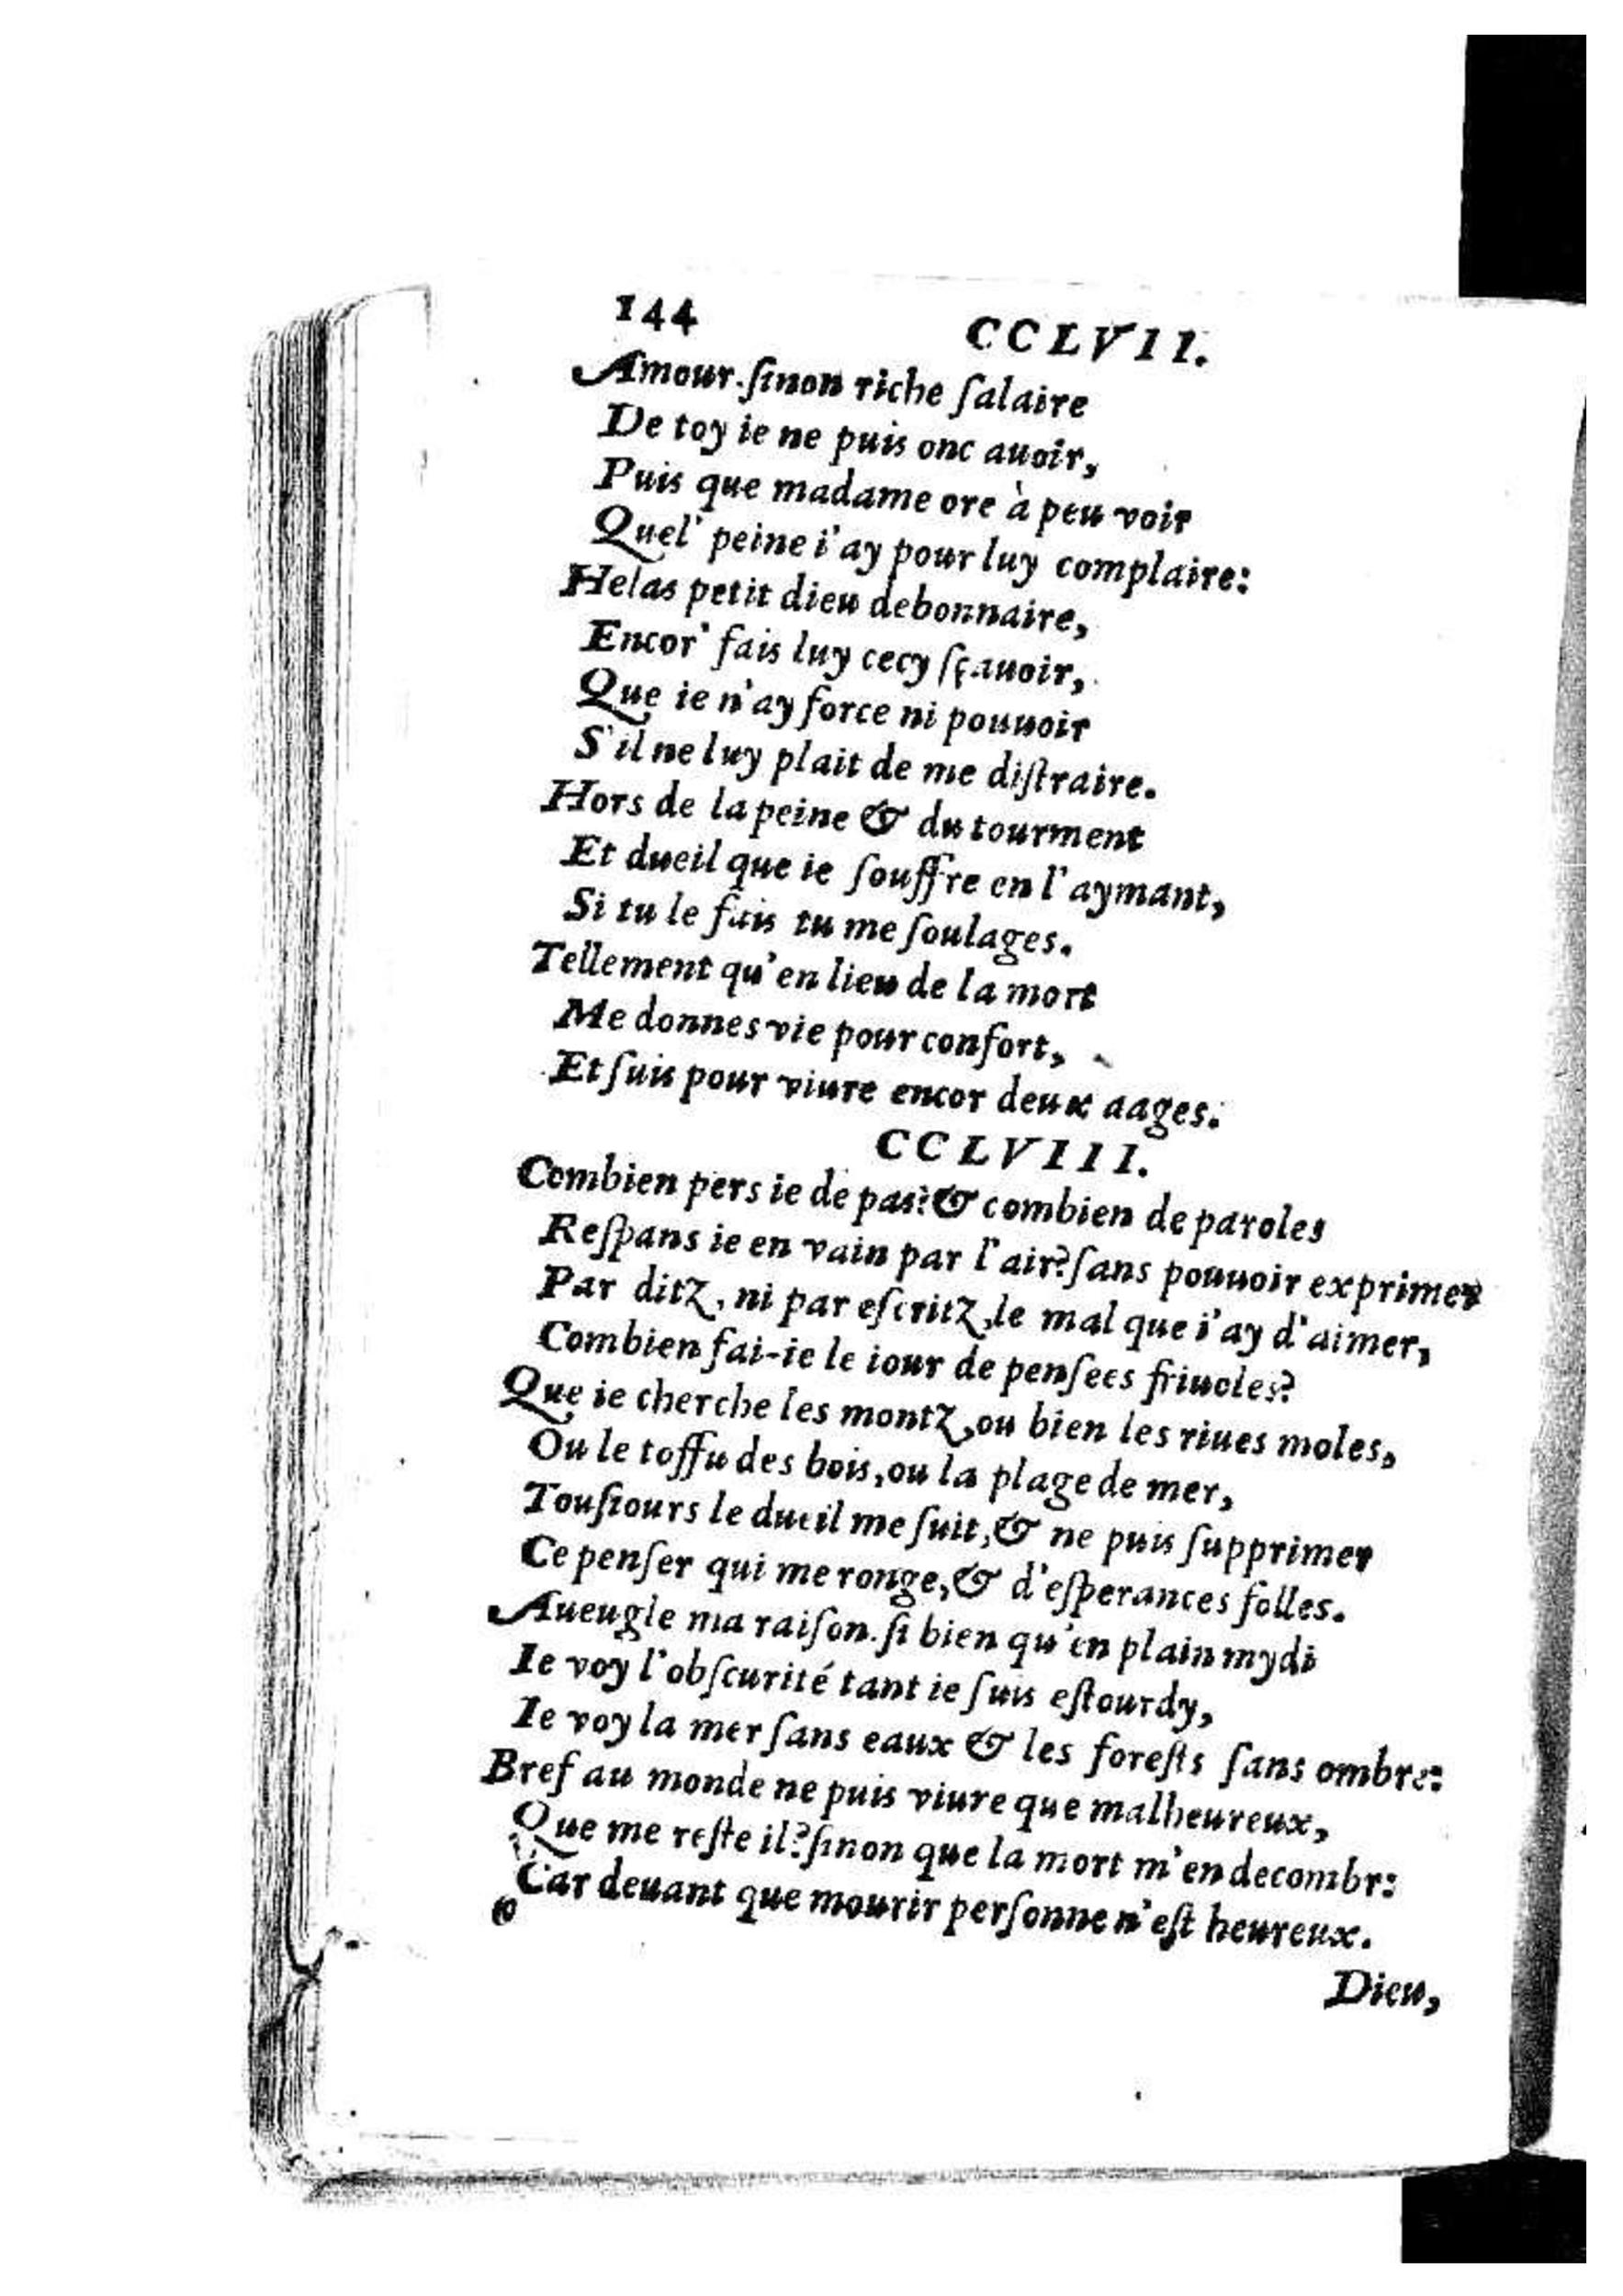 144 CCLVII.
Amour. ſinon riche ſalaire
De toy ie ne puis onc auoir,
Puis que madame ore à peu voir
Quel' peine i'ay pour luy complaire:
Helas petit dieu debonnaire,
Encor' fais luy cecy ſçauoir,
Que ie n'ay force ni pouuoir
S'il ne luy plait de me diſtraire.
Hors de la peine & du tourment
Et dueil que ie ſouffre en l'aymant,
Si tu le fais tu me ſoulages.
Tellement qu'en lieu de la mort
Me donnes vie pour confort,
Et ſuis pour viure encor deux aages.
CCLVIII.
Combien pers ie de pas? & combien de paroles
Reſpans ie en vain par l'air? ſans pouuoir exprimer
Par ditz, ni par eſcritz, le mal que i'ay d'aimer,
Combien fai-ie le iour de penſees friuoles?
Que ie cherche les montz, ou bien les riues moles,
Ou le toffu des bois, ou la plage de mer,
Touſiours le dueil me ſuit, & ne puis ſupprimer
Ce penſer qui me ronge, & d'eſperances folles.
Aueugle ma raiſon. ſi bien qu'en plain mydi
Ie voy l'obſcurité tant ie ſuis eſtourdy,
Ie voy la mer ſans eaux & les foreſts ſans ombre:
Bref au monde ne puis viure que malheureux,
Que me reſte il? ſinon que la mort m'en decombr:
Car deuant que mourir perſonne n'eſt heureux.
Dieu,